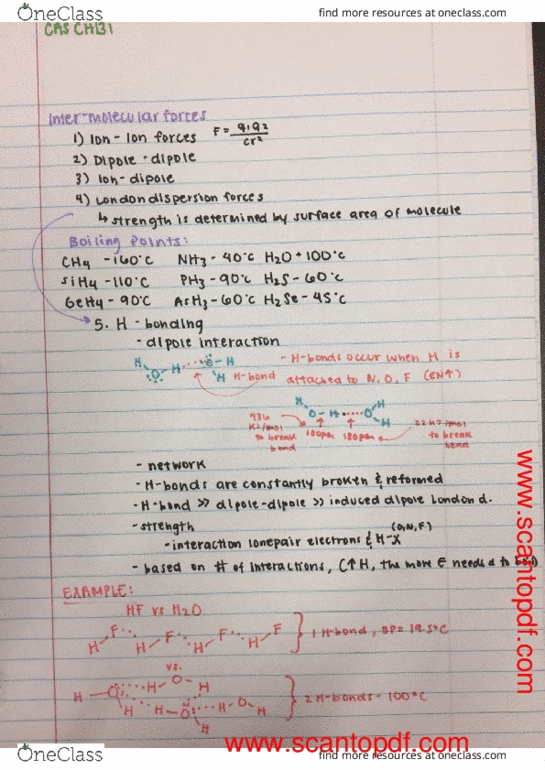 OneClass
find more resources at oneclass.com
CAS CH131
Inter-molecular forces
1) Ion - Ion forces F = q1q2 / cr²
2) Dipole - dipole
3) Ion - dipole
4) London dispersion forces
↳ strength is determined by surface area of molecule
Boiling Points:
CH4 -160°C NH3 -40°C H2O +100°C
SiH4 -110°C PH3 -90°C H2S -60°C
GeH4 -90°C AsH3 -60°C H2Se -45°C
5. H - bonding
- dipole interaction
H O H O H H
- H-bonds occur when H is
H-bond attached to N, O, F (EN↑)
H O - H O H H
436 KJ/mol to break bond
100pm 180pm
22 KJ/mol to break bond
- network
- H-bonds are constantly broken & reformed
- H-bond >> dipole-dipole >> induced dipole London d.
- strength
- interaction lonepair electrons & H-X (O,N,F)
- based on # of interactions, (↑H, the more E needed to
EXAMPLE:
HF vs H2O
F F F F
H H H H
1 H-bond, BP= 19.5°C
vs.
H O H O H
H H O H O H
H
2 H-bonds - 100°C
www.scantopdf.com
www.scantopdf.com
OneClass
find more resources at oneclass.com